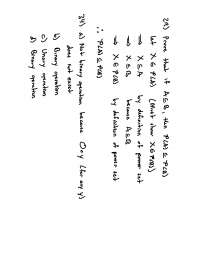 29) Prove that if A ⊆ B, then P(A) ⊆ P(B)
Let X ∈ P(A) (Must show X ∈ P(B))
⟹ X ⊆ A by definition of power set
⟹ X ⊆ B because A ⊆ B
⟹ X ∈ P(B) by definition of power set
∴ P(A) ⊆ P(B)
a) Not binary operation because 0÷y (for any y)
does not exist
b) Unary operation
c) Unary operation
d) Binary operation